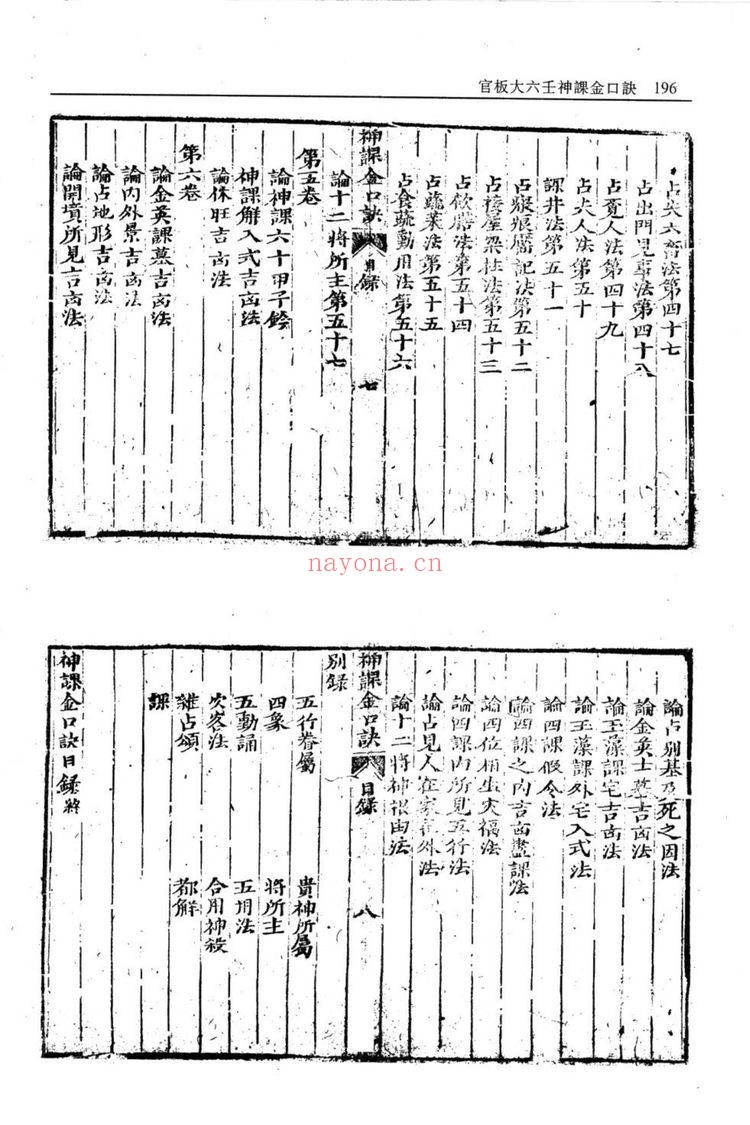 官板大六壬神課金口訣 196
占失六畜法第四十七
占出門見事法第四十八
占覓人法第四十九
占失人法第五十
課井法第五十一
占瘢痕黶記法第五十二
占梁柱法第五十三
占飲膳法第五十四
占蔬菜法第五十五
占食蔬勤用法第五十六
神課金口訣 目錄 七
論十二將所主第五十七
第五卷
論神課六十甲子鈐
神課解入式吉凶法
論休旺吉凶法
第六卷
論金英課墓吉凶法
論內外景吉凶法
論占地形吉凶法
論開墳所見吉凶法
nayona.cn
論占別墓及死之因法
論金英士墓吉凶法
論玉藻課宅吉凶法
論玉藻課外宅入式法
論四課假令法
論四課之內吉凶盡課法
論四位相生災福法
論四課內所見五行法
論占見人在家在外法
論十二將神根由法
神課金口訣 目錄 八
別錄
五行眷屬 貴神所屬
四象 將所主
五動誦 五用法
次客法 合用神殺
雜占頌 都解
課
神課金口訣目錄終